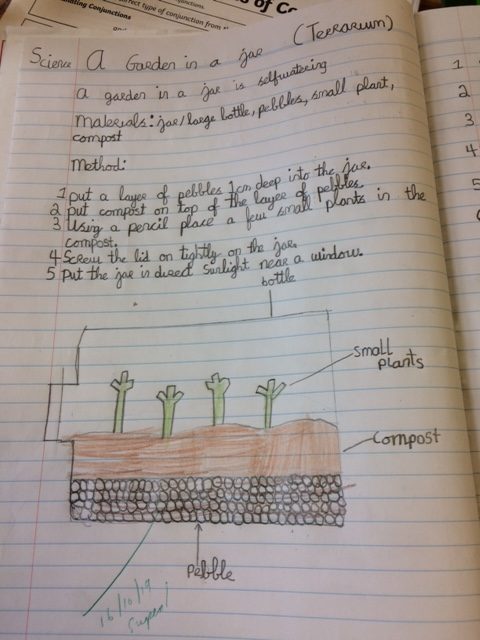 andling Conjunctions
s of Co
njunctions.
rrect type of conjunction from
Science A Garden in a jar (Terrarium)
a garden in a jar is selfwatering
Materials: jar/large bottle, pebbles, small plant,
compost
Method:
1 put a layer of pebbles 1cm deep into the jar.
2 put compost on top of the layer of pebbles.
3 Using a pencil place a few small plants in the
compost.
4 Screw the lid on tightly on the jar.
5 Put the jar in direct sunlight near a window.
bottle
small
plants
compost
pebble
16/10/19
Super!
1
2
3
4
5